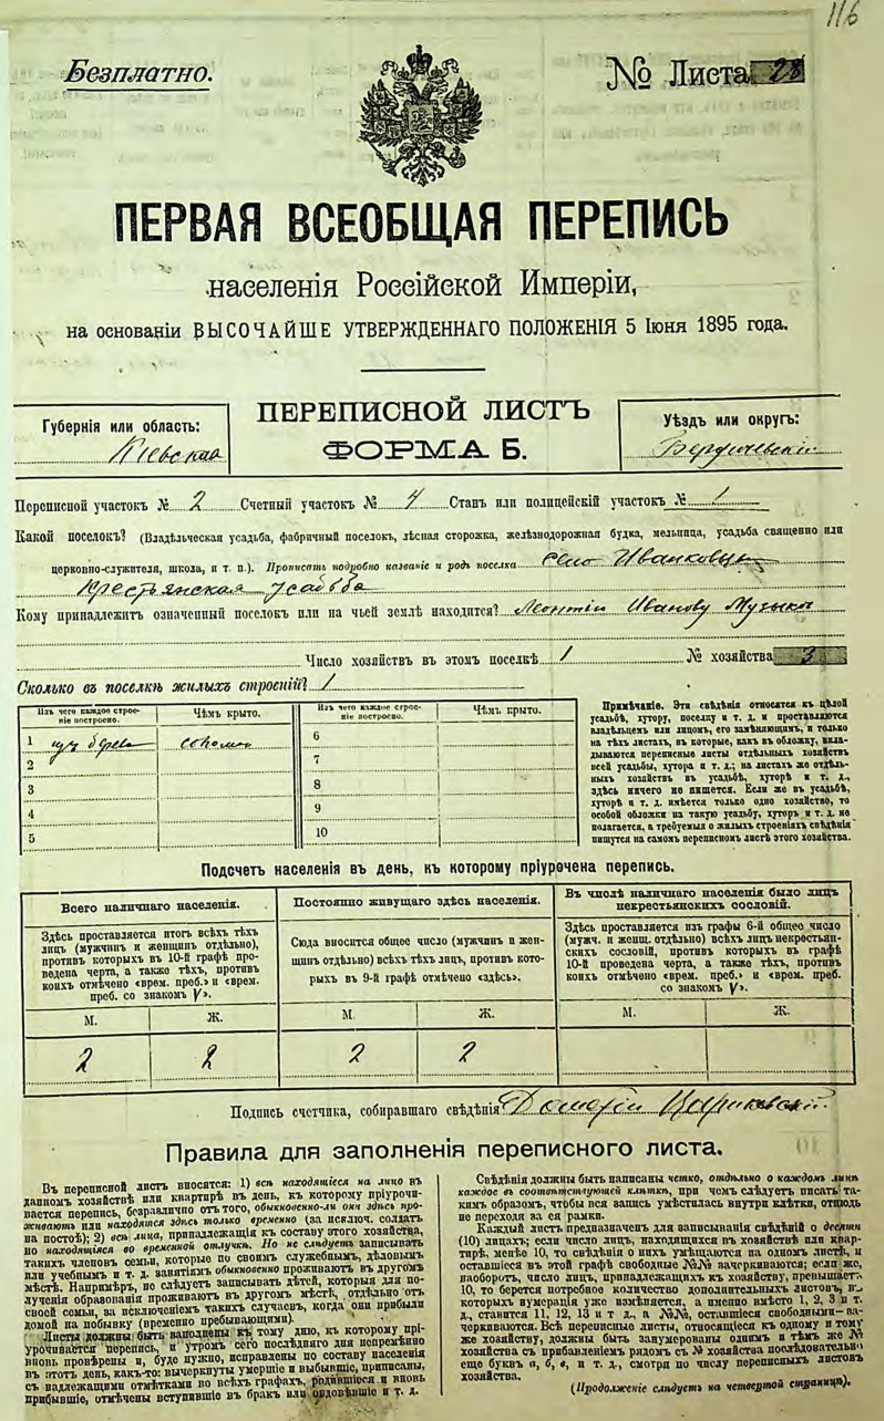 116
Безплатно.
№ Листа 28
ПЕРВАЯ ВСЕОБЩАЯ ПЕРЕПИСЬ
населенія Россійской Имперіи,
на основаніи ВЫСОЧАЙШЕ УТВЕРЖДЕННАГО ПОЛОЖЕНІЯ 5 Іюня 1895 года.
Губернія или область:
Кіевская
ПЕРЕПИСНОЙ ЛИСТЪ
ФОРМА Б.
Уѣздъ или округъ:
Бердичевскій
Переписной участокъ № 2 Счетный участокъ № 4 Станъ или полицейскій участокъ № 1
Какой поселокъ? (Владѣльческая усадьба, фабричный поселокъ, лѣсная сторожка, желѣзнодорожная будка, мельница, усадьба священно или
церковно-служителя, школа, и т. п.). Прописать подробно названіе и родъ поселка село Иванковцы
Крестьянская усадьба
Кому принадлежитъ означенный поселокъ или на чьей землѣ находится? Леонтію Иванову Музыка
Число хозяйствъ въ этомъ поселкѣ 1 № хозяйства 3
Сколько въ поселкѣ жилыхъ строеній? 1
Изъ чего каждое строе-
ніе построено.
Чѣмъ крыто.
Изъ чего каждое строе-
ніе построено.
Чѣмъ крыто.
1 изъ дерева соломой
2
3
4
5
6
7
8
9
10
Примѣчаніе. Эти свѣдѣнія относятся къ цѣлой
усадьбѣ, хутору, поселку и т. д. и проставляются
владѣльцемъ или лицомъ, его замѣняющимъ, и только
на тѣхъ листахъ, въ которые, какъ въ обложку, вкла-
дываются переписные листы отдѣльныхъ хозяйствъ
всей усадьбы, хутора и т. д.; на листахъ же отдѣль-
ныхъ хозяйствъ въ усадьбѣ, хуторѣ и т. д.,
здѣсь ничего не пишется. Если же въ усадьбѣ,
хуторѣ и т. д. имѣется только одно хозяйство, то
особой обложки на такую усадьбу, хуторъ и т. д. не
полагается, а требуемыя о жилыхъ строеніяхъ свѣдѣнія
пишутся на самомъ переписномъ листѣ этого хозяйства.
Подсчетъ населенія въ день, къ которому пріурочена перепись.
Всего наличнаго населенія.
Здѣсь проставляется итогъ всѣхъ тѣхъ
лицъ (мужчинъ и женщинъ отдѣльно),
противъ которыхъ въ 10-й графѣ про-
ведена черта, а также тѣхъ, противъ
коихъ отмѣчено «врем. преб.» и «врем.
преб. со знакомъ V».
М. Ж.
2 2
Постоянно живущаго здѣсь населенія.
Сюда вносится общее число (мужчинъ и жен-
щинъ отдѣльно) всѣхъ тѣхъ лицъ, противъ кото-
рыхъ въ 9-й графѣ отмѣчено «здѣсь».
М Ж.
2 2
Въ числѣ наличнаго населенія было лицъ
некрестьянскихъ сословій.
Здѣсь проставляется изъ графы 6-й общее число
(мужч. и женщ. отдѣльно) всѣхъ лицъ некрестьян-
скихъ сословій, противъ которыхъ въ графѣ
10-й проведена черта, а также тѣхъ, противъ
коихъ отмѣчено «врем. преб.» и «врем. преб.
со знакомъ V».
М. Ж.
Подпись счетчика, собиравшаго свѣдѣнія
Правила для заполненія переписного листа.
Въ переписной листъ вносятся: 1) всѣ находящіеся на лицо въ
данномъ хозяйствѣ или квартирѣ въ день, къ которому пріурочи-
вается перепись, безразлично отъ того, обыкновенно-ли они здѣсь про-
живаютъ или находятся здѣсь только временно (за исключ. солдатъ
на постоѣ); 2) всѣ лица, принадлежащія къ составу этого хозяйства,
но находящіяся во временной отлучкѣ. Но не слѣдуетъ записывать
такихъ членовъ семьи, которые по своимъ служебнымъ, дѣловымъ
или учебнымъ и т. д. занятіямъ обыкновенно проживаютъ въ другомъ
мѣстѣ. Напримѣръ, не слѣдуетъ записывать дѣтей, которыя для по-
лученія образованія проживаютъ въ другомъ мѣстѣ, отдѣльно отъ
своей семьи, за исключеніемъ такихъ случаевъ, когда они прибыли
домой на побывку (временно пребывающими).
Листы должны быть наполнены къ тому дню, къ которому прі-
урочивается перепись, и утромъ сего послѣдняго дня непремѣнно
вновь провѣрены и, буде нужно, исправлены по составу населенія
въ этотъ день, какъ-то: вычеркнуты умершіе и выбывшіе, приписаны,
съ надлежащими отмѣтками по всѣхъ графахъ, родившіеся и вновь
прибывшіе, отмѣчены вступившіе въ бракъ или овдовѣвшіе и т. д.
Свѣдѣнія должны быть написаны четко, отдѣльно о каждомъ лицѣ
каждое въ соотвѣтствующей клѣткѣ, при чемъ слѣдуетъ писать та-
кимъ образомъ, чтобы вся запись умѣстилась внутри клѣтки, отнюдь
не переходя за ея рамки.
Каждый листъ предназначенъ для записыванія свѣдѣній о десяти
(10) лицахъ; если число лицъ, находящихся въ хозяйствѣ или квар-
тирѣ, менѣе 10, то свѣдѣнія о нихъ умѣщаются на одномъ листѣ, и
оставшіеся въ этой графѣ свободные №№ зачеркиваются; если же,
наоборотъ, число лицъ, принадлежащихъ къ хозяйству, превышаетъ
10, то берется потребное количество дополнительныхъ листовъ, на
которыхъ нумерація уже измѣняется, а именно вмѣсто 1, 2, 3 и т.
д., ставится 11, 12, 13 и т. д., а №№, оставшіеся свободными—за-
черкиваются. Всѣ переписные листы, относящіеся къ одному и тому
же хозяйству, должны быть занумерованы однимъ и тѣмъ же №
хозяйства съ прибавленіемъ рядомъ съ № хозяйства послѣдовательно
еще буквъ а, б, в, и т. д., смотря по числу переписныхъ листовъ
хозяйства.
(Продолженіе слѣдуетъ на четвертой страницѣ).